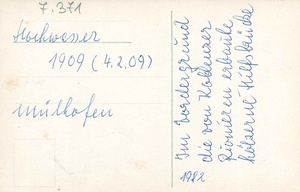 7.371
Hochwasser
1909 (4.2.09)
Mülhofen
Im Vordergrund
die von Koblenzer
Pionieren erbaute
hölzerne Hilfsbrücke
1982